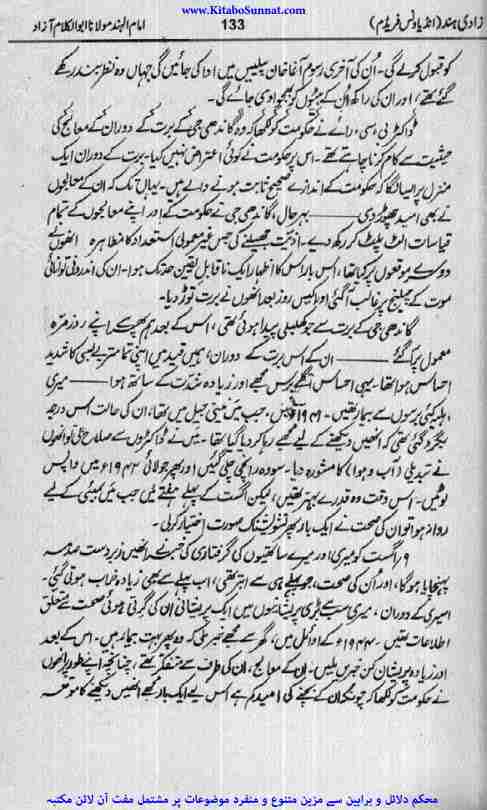 www.KitaboSunnat.com
زادی ہند (انڈیا ونس فریڈم)
133
امام الہند مولانا ابوالکلام آزاد
کو قبول کرلے گی۔ اُن کی آخری رسوم آغا خان پیلیس میں ادا کی جائیں گی جہاں وہ نظر بند رکھے
گئے تھے، اور ان کی راکھ اُن کے بیٹوں کو بھجوا دی جائے گی۔
ڈاکٹر بی، سی، رائے نے حکومت کو لکھا کہ وہ گاندھی جی کے برت کے دوران کے معالج کی
حیثیت سے کام کرنا چاہتے تھے۔ اس پر حکومت نے کوئی اعتراض نہیں کیا۔ برت کے دوران ایک
منزل پر ایسا لگا کہ حکومت کے اندازے صحیح ثابت ہونے والے ہیں۔ یہاں تک کہ ان کے معالجوں
نے بھی امید چھوڑ دی —— بہرحال، گاندھی جی نے حکومت کے اور اپنے معالجوں کے تمام
قیاسات الٹ پلٹ کر رکھ دیے۔ اذیت جھیلنے کی جس غیر معمولی استعداد کا مظاہرہ انھوں نے
دوسرے موقعوں پر کیا تھا، اس بار اس کا اظہار ایک ناقابل یقین حد تک ہوا۔ ان کی اندرونی توانائی
موت کے چیلنج پر غالب آگئی اور اکیس روز بعد انھوں نے برت توڑ دیا۔
گاندھی جی کے برت سے جو کھلبلی پیدا ہوئی تھی، اس کے بعد ہم پھر سے اپنے روز مرہ
معمول پر آگئے —— ان کے اس برت کے دوران، ہمیں قید میں اپنی تمام تر بے بسی کا شدید
احساس ہوا تھا۔ یہی احساس اگلے برس مجھے اور زیادہ شدت کے ساتھ ہوا —— میری
اہلیہ کئی برسوں سے بیمار تھیں۔ ۱۹۴۱ء میں، جب میں نینی جیل میں تھا، ان کی حالت اس درجہ
بگڑ گئی تھی کہ انھیں دیکھنے کے لیے مجھے رہا کر دیا گیا تھا۔ میں نے ڈاکٹروں سے صلاح لی تو انھوں
نے تبدیلیِ (آب و ہوا) کا مشورہ دیا۔ سو وہ رانچی چلی گئیں اور پھر جولائی ۱۹۴۲ء میں واپس
لوٹیں۔ اس وقت وہ قدرے بہتر تھیں، لیکن اگست کے پہلے ہفتے میں جب میں بمبئی کے لیے
روانہ ہوا تو ان کی صحت نے ایک بار پھر تشویشناک صورت اختیار کرلی۔
۹ر اگست کو میری اور میرے ساتھیوں کی گرفتاری کی خبر نے انھیں زبردست صدمہ
پہنچایا ہوگا، اور اُن کی صحت، جو پہلے ہی سے ابتر تھی، اب پہلے سے بھی زیادہ خراب ہوتی گئی۔
اسیری کے دوران، میری سب سے بڑی پریشانیوں میں ایک پریشانی اُن کی گرتی ہوئی صحت سے متعلق
اطلاعات تھیں۔ ۱۹۴۴ء کے اوائل میں، گھر سے مجھے خبر ملی کہ وہ پھر بہت بیمار ہیں۔ اس کے بعد
اور زیادہ پریشان کن خبریں ملیں۔ ان کے معالج، ان کی طرف سے متفکر تھے، چنانچہ اپنے طور پر انھوں
نے حکومت کو لکھا کہ چونکہ ان کے بچنے کی امید کم ہے اس لیے ایک بار مجھے انھیں دیکھنے کا موقعہ
محکم دلائل و براہین سے مزین متنوع و منفرد موضوعات پر مشتمل مفت آن لائن مکتبہ